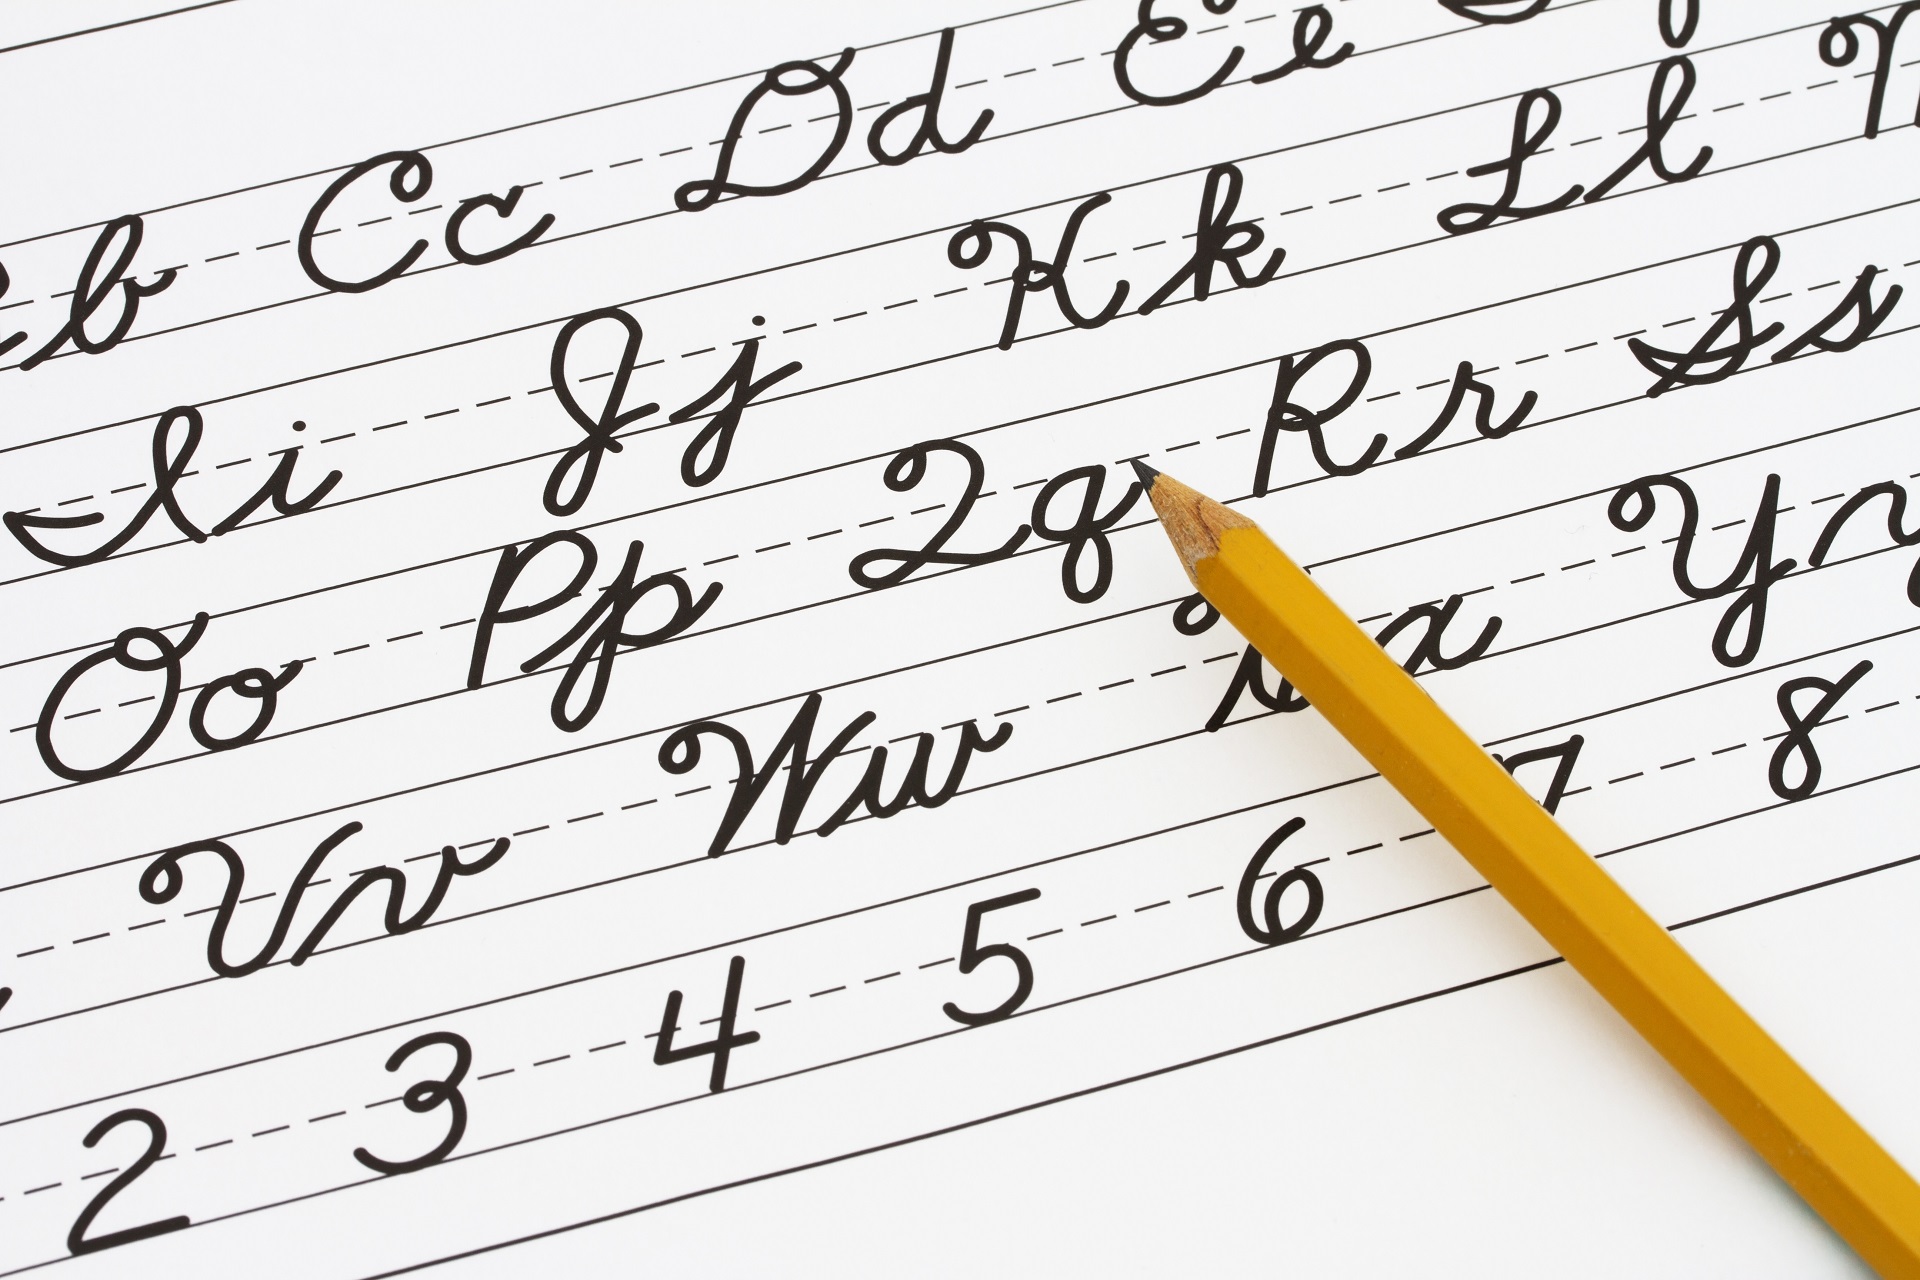 b Cc Dd Ee
Ii Jj Kk Ll
Oo Pp Qq Rr Ss
Vv Ww Xx Yy
2 3 4 5 6 7 8